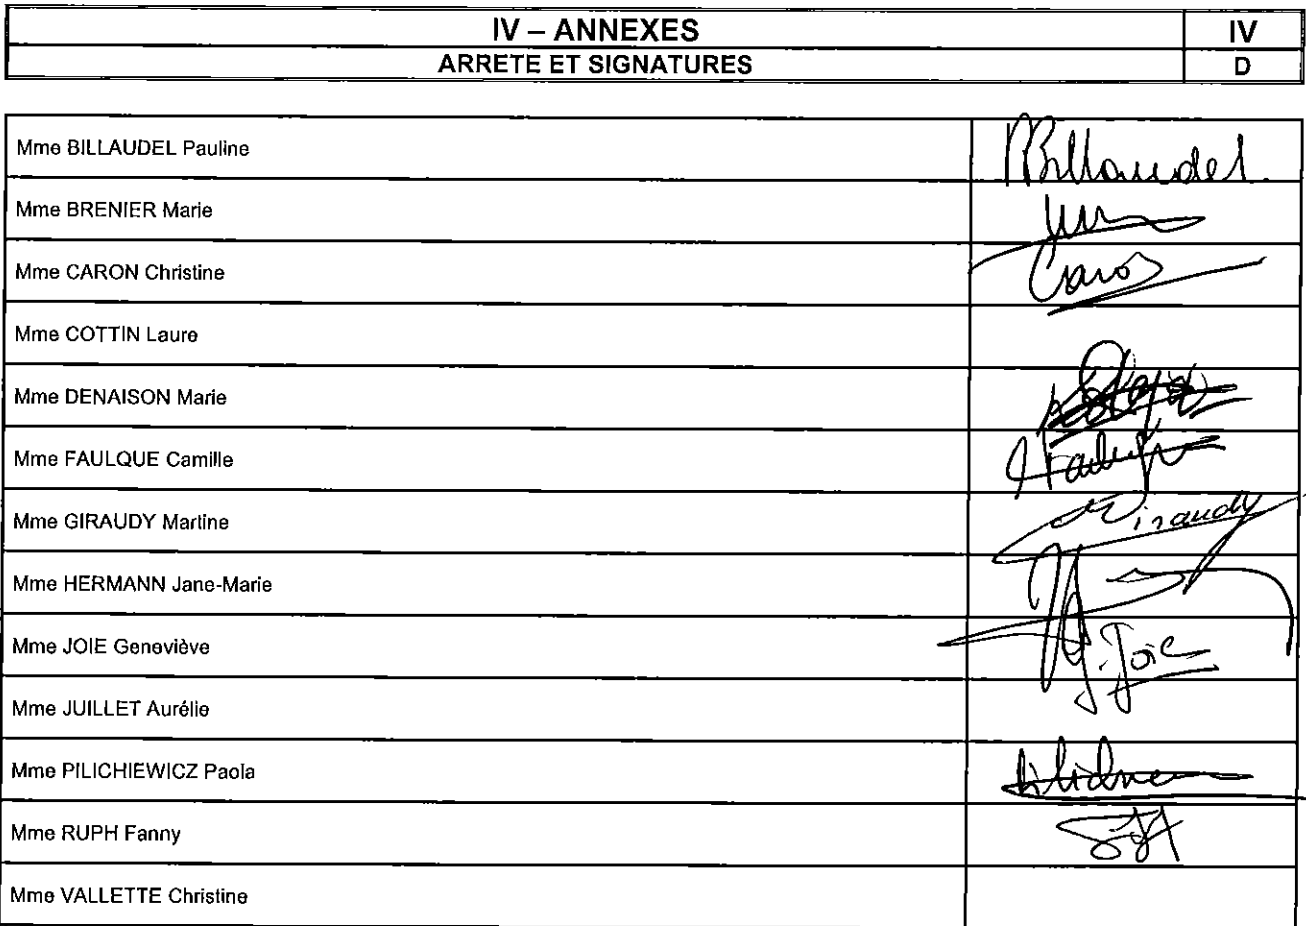 IV – ANNEXES
IV
ARRETE ET SIGNATURES
D
Mme BILLAUDEL Pauline
PBillaudel
Mme BRENIER Marie
Mme CARON Christine
Caron
Mme COTTIN Laure
Mme DENAISON Marie
Mme FAULQUE Camille
Mme GIRAUDY Martine
Giraudy
Mme HERMANN Jane-Marie
Mme JOIE Geneviève
Joie
Mme JUILLET Aurélie
Mme PILICHIEWICZ Paola
Mme RUPH Fanny
Mme VALLETTE Christine